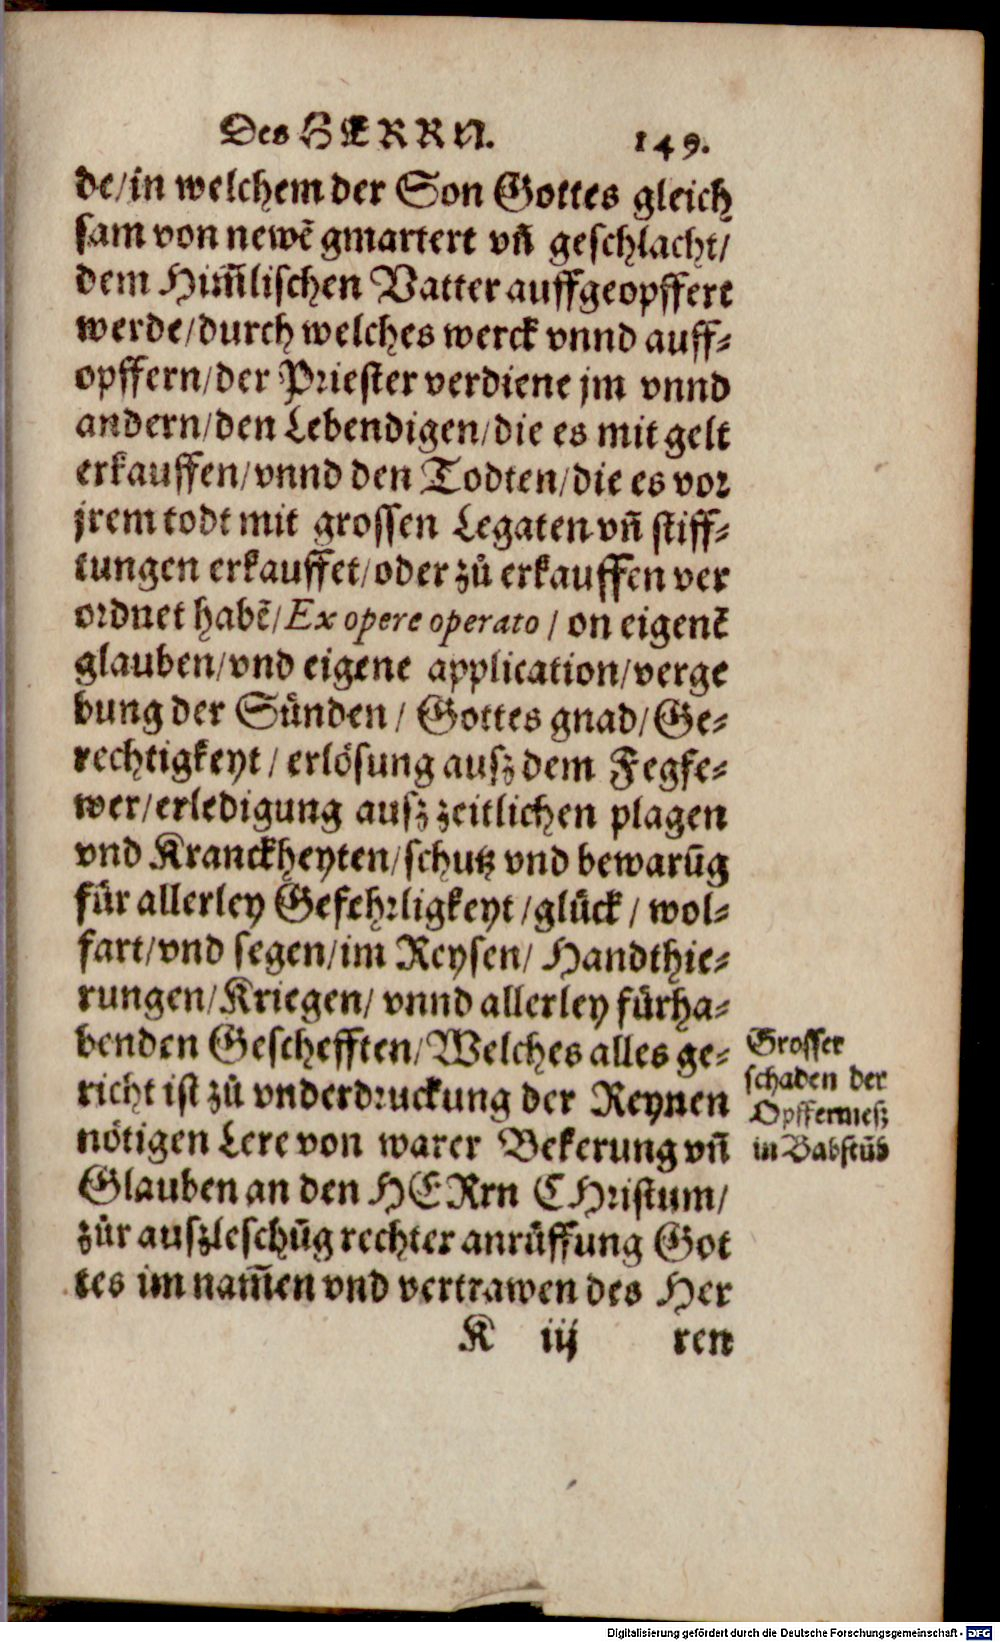 Des HERRN. 149.
de/in welchem der Son Gottes gleich
sam von newẽ gmartert vñ geschlacht/
dem Him̃lischen Vatter auffgeopffert
werde/durch welches werck vnnd auff⸗
opffern/der Priester verdiene jm vnnd
andern/den Lebendigen/die es mit gelt
erkauffen/vnnd den Todten/die es vor
jrem todt mit grossen Legaten vñ stiff⸗
tungen erkauffet/oder zů erkauffen ver
ordnet habẽ/Ex opere operato / on eigenẽ
glauben/vnd eigene application/verge
bung der Sünden / Gottes gnad/Ge⸗
rechtigkeyt / erlösung ausz dem Fegfe⸗
wer/erledigung ausz zeitlichen plagen
vnd Kranckheyten/schutz vnd bewarũg
für allerley Gefehrligkeyt /glück / wol⸗
fart/vnd segen/im Reysen/ Handthie⸗
rungen/Kriegen/ vnnd allerley fürha⸗
benden Geschefften/Welches alles ge⸗
richt ist zů vnderdruckung der Reynen
nötigen Lere von warer Bekerung vñ
Glauben an den HERrn CHristum/
zůr auszleschũg rechter anrůffung Got
tes im nam̃en vnd vertrawen des Her
K iij ren
Grosser
schaden der
Opffermesz
in Babstũb
Digitalisierung gefördert durch die Deutsche Forschungsgemeinschaft - DFG